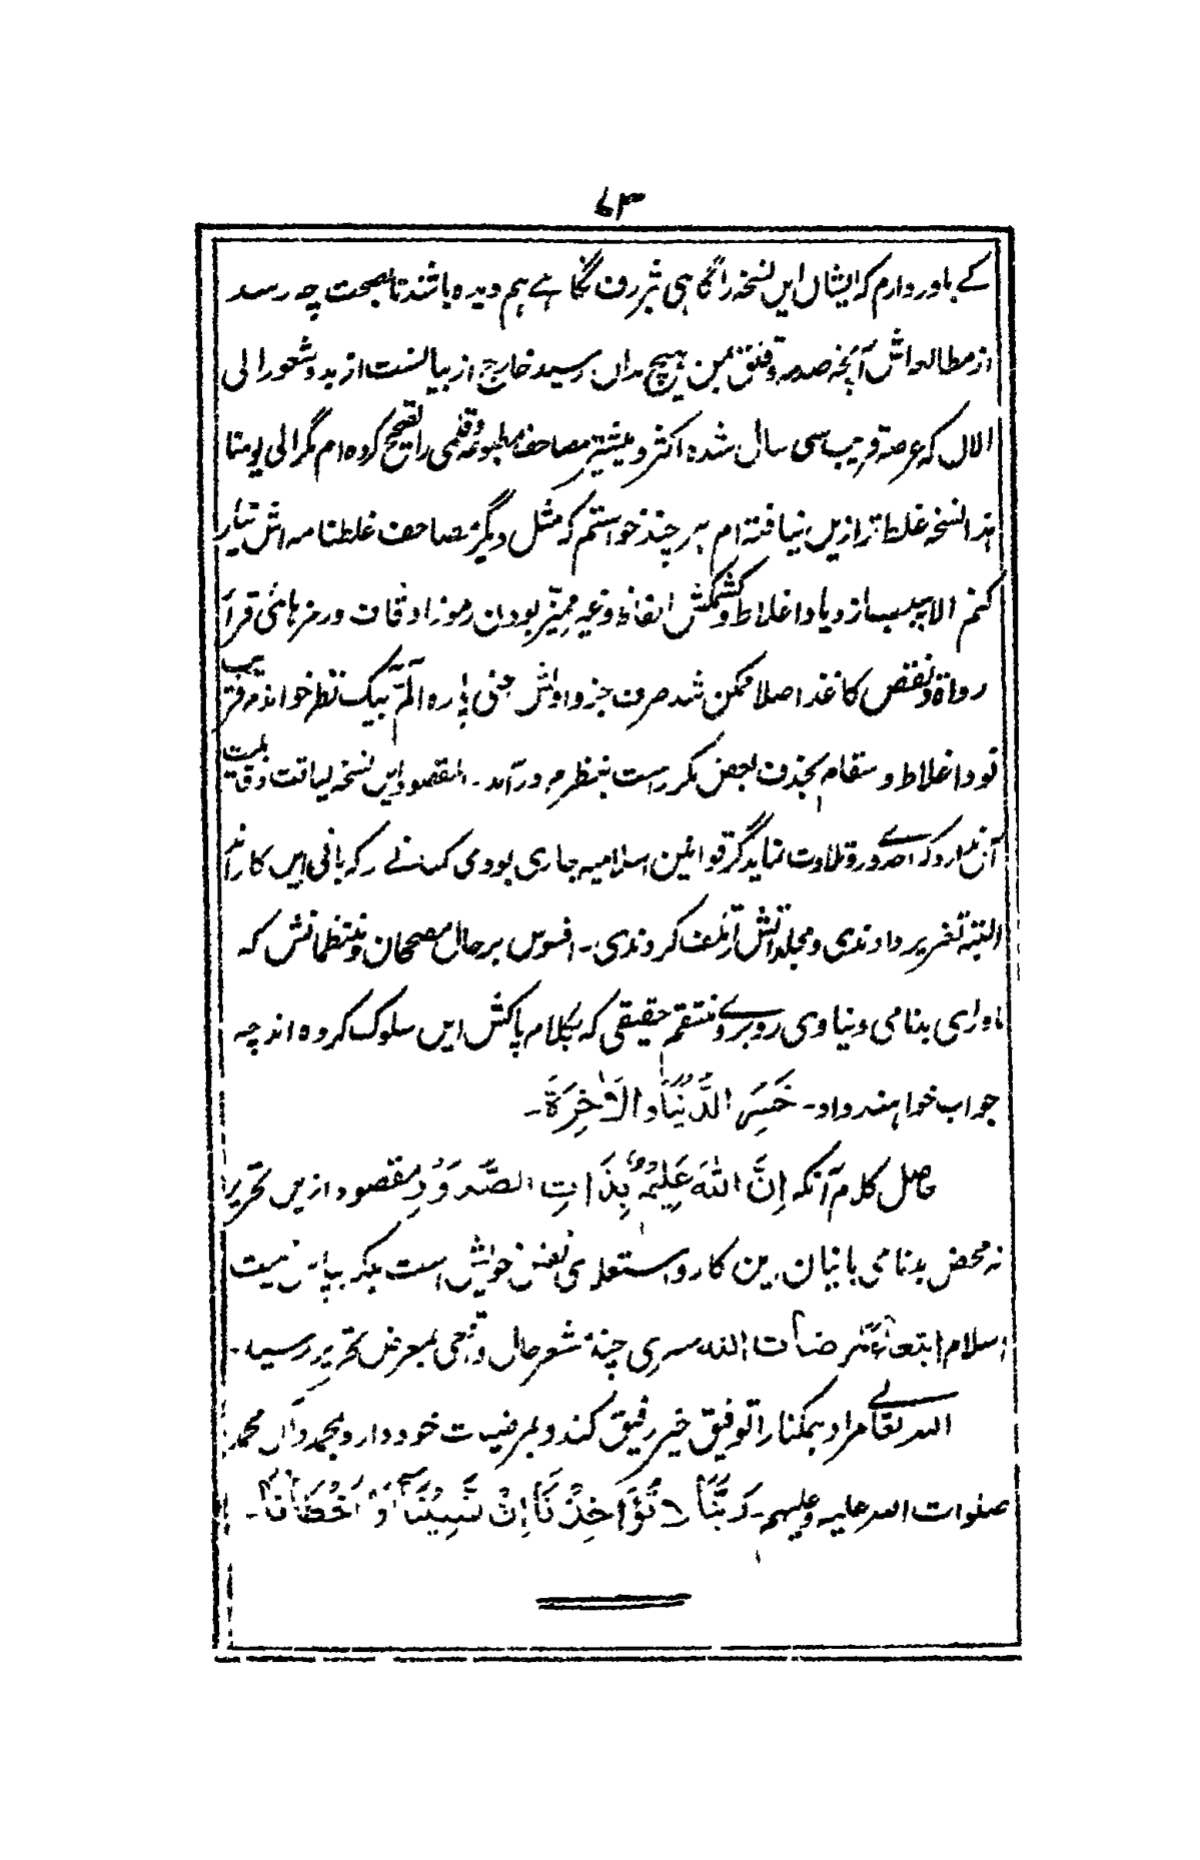 ۶۳
کے باور دارم کہ ایشاں ایں نسخہ را گاہی بژرف نگاہے ہم دیدہ باشند تا بصحت چہ رسد
از مطالعہ اش آنچہ صدمہ و قلق بمن ہیچ مداں رسید خارج از بیانست از بدو شعور الی
الاٰں کہ عرصہ قریب سی سال شدہ اکثر و بیشتر مصاحف مطبوعہ و قلمی را تصحیح کردہ ام مگر الی یومنا
ہذا نسخہ غلط تر ازیں نیافتہ ام ہر چند خواستم کہ مثل دیگر مصاحف غلطنامہ اش تیار
کنم الا بسبب ازدیاد اغلاط و کشمکش الفاظ و غیر ممیّز بودن رموز اوقات و رمزہائی قرآ
رواۃ و نقص کاغذ اصلا ممکن نشد صرف جزو اولش یعنی پارہ الٓمّٓ بیک نظر خواندم قریب
نود اغلاط و سقام بحذف بعض مکررست بنظرم درآمد۔ المقصود ایں نسخہ لیاقت و قابلیت
آں ندارد کہ احدے درو تلاوت نماید گر قوانین اسلامیہ جاری بودی کسانے را کہ بانی ایں کاراند
البتہ تعزیر دادندی و مجلداتش را تلف کردندی۔ افسوس بر حال مصححان و منتظمانش کہ
ماورای بدنامی دنیاوی روبروے منتقم حقیقی کہ بکلام پاکش ایں سلوک کردہ اند چہ
جواب خواہند داد۔ خَسِرَ الدُّنْیَا وَ الْاٰخِرَۃَ۔
حاصل کلام آنکہ اِنَّ اللّٰہَ عَلِیْمٌۢ بِذَاتِ الصُّدُوْرِ مقصود ازیں تحریر
نہ محض بدنامی بانیان این کار و استعلای نفس خویش است بلکہ بپاس حمیت
اسلام ابتغاءً لمرضات اللہ سطری چند مشعر حال واقعی بمعرض تحریر رسید۔
اللہ تعالے مراد ہمکناں را توفیق خیر رفیق کند و بمرضیات خود دارد بمحمد و آل محمد
صلوات اللہ علیہ و علیہم۔ رَبَّنَا لَا تُؤَاخِذْنَا اِنْ نَّسِیْنَا اَوْ اَخْطَأْنَا۔